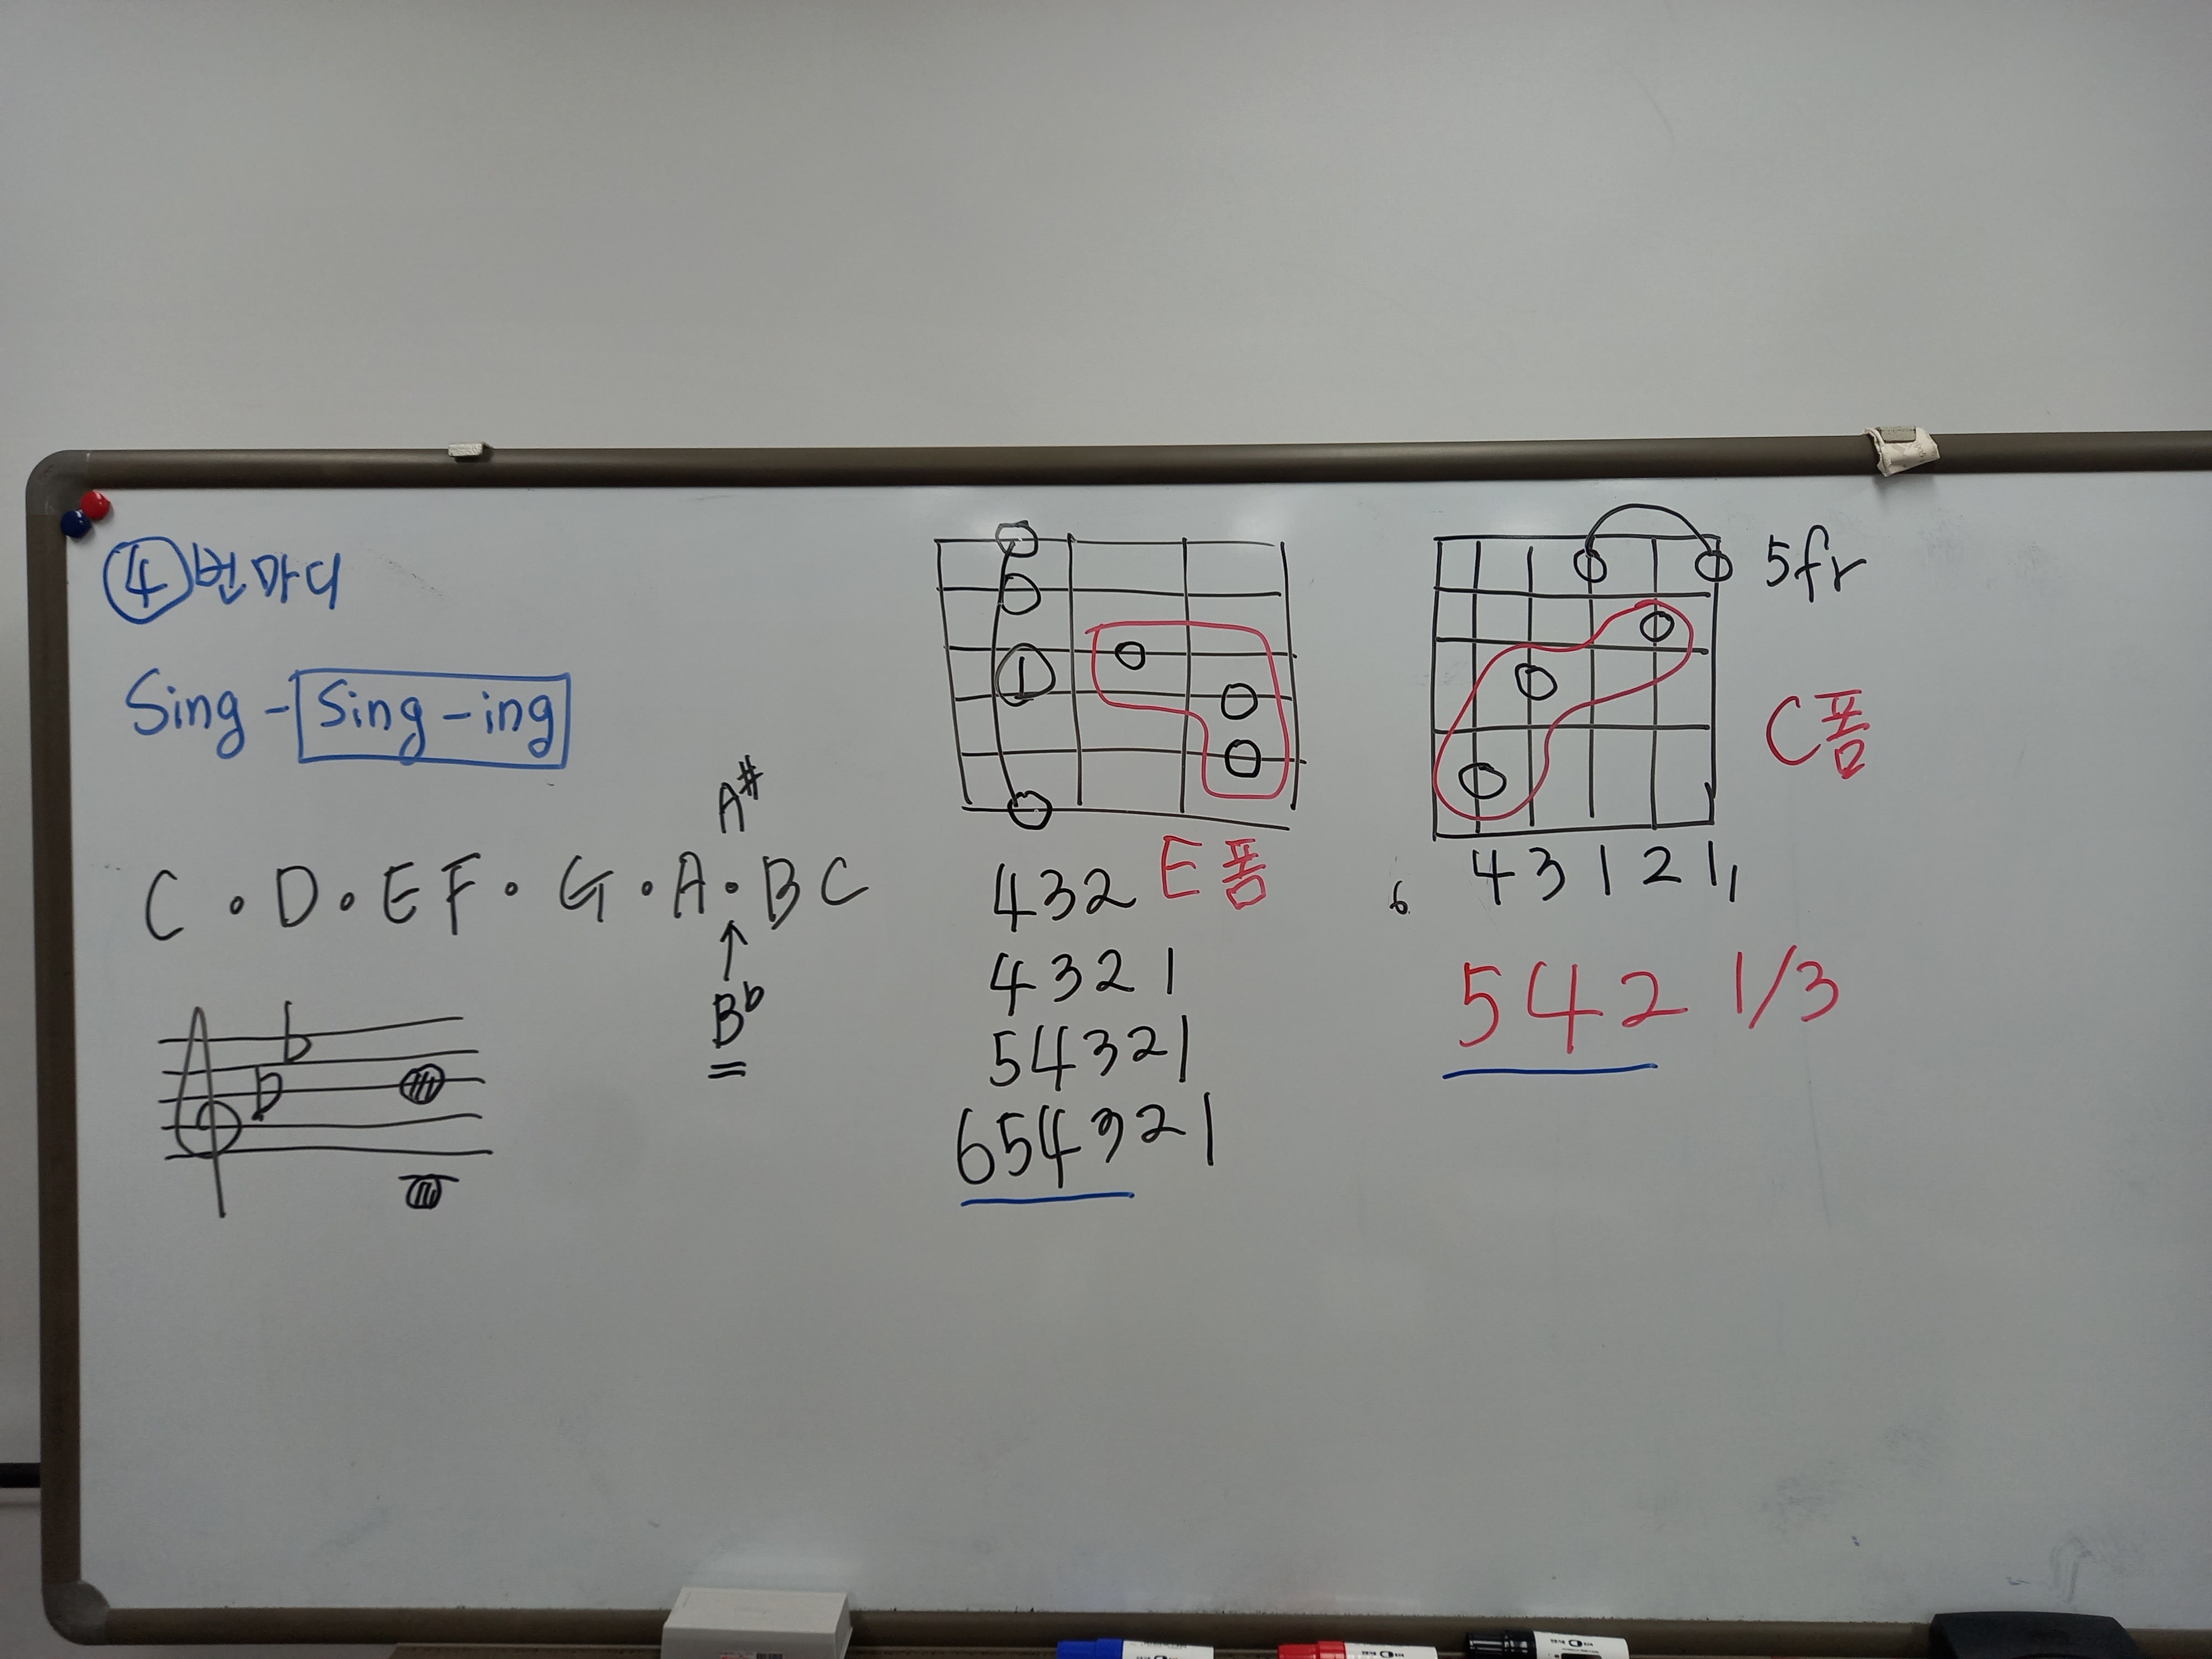 ④번마디
Sing - Sing - ing
A#
C · D · E F · G · A · B C
↑
Bb
b
b
1
E폼
432
4321
54321
654321
5fr
C폼
6. 4 3 1 2 1,
5 4 2 1/3